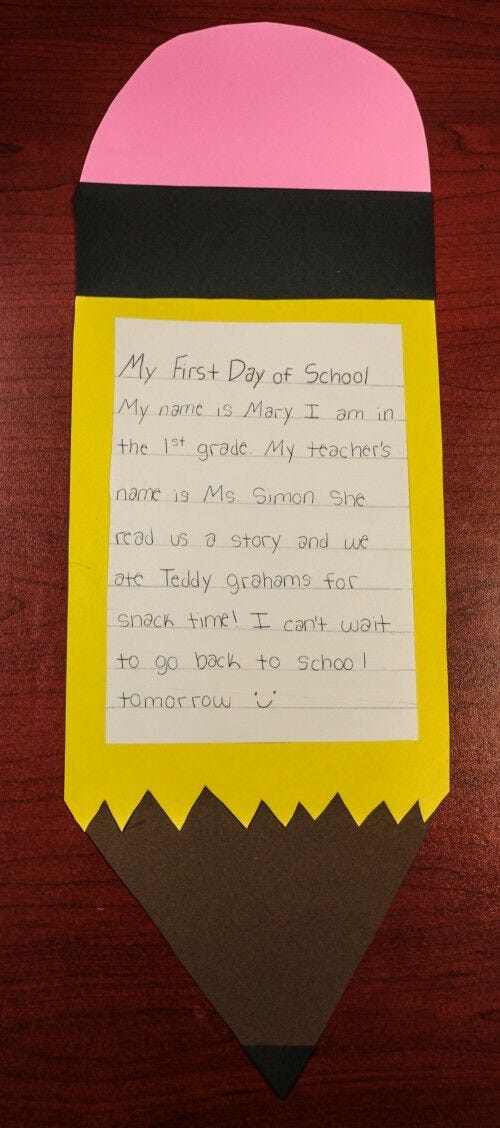 My First Day of School
My name is Mary I am in
the 1st grade. My teacher's
name is Ms Simon. She
read us a story and we
ate Teddy grahams for
snack time! I can't wait
to go back to school
tomorrow